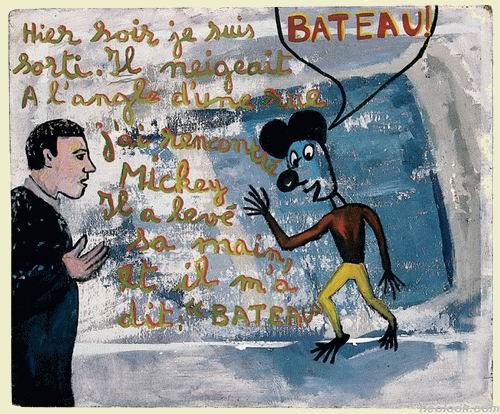 BATEAU!
Hier soir, je suis
sorti. Il neigeait
A l'angle d'une rue
j'ai rencontré
Mickey
Il a levé
sa main,
et il m'a
dit: "BATEAU"
neolook.com